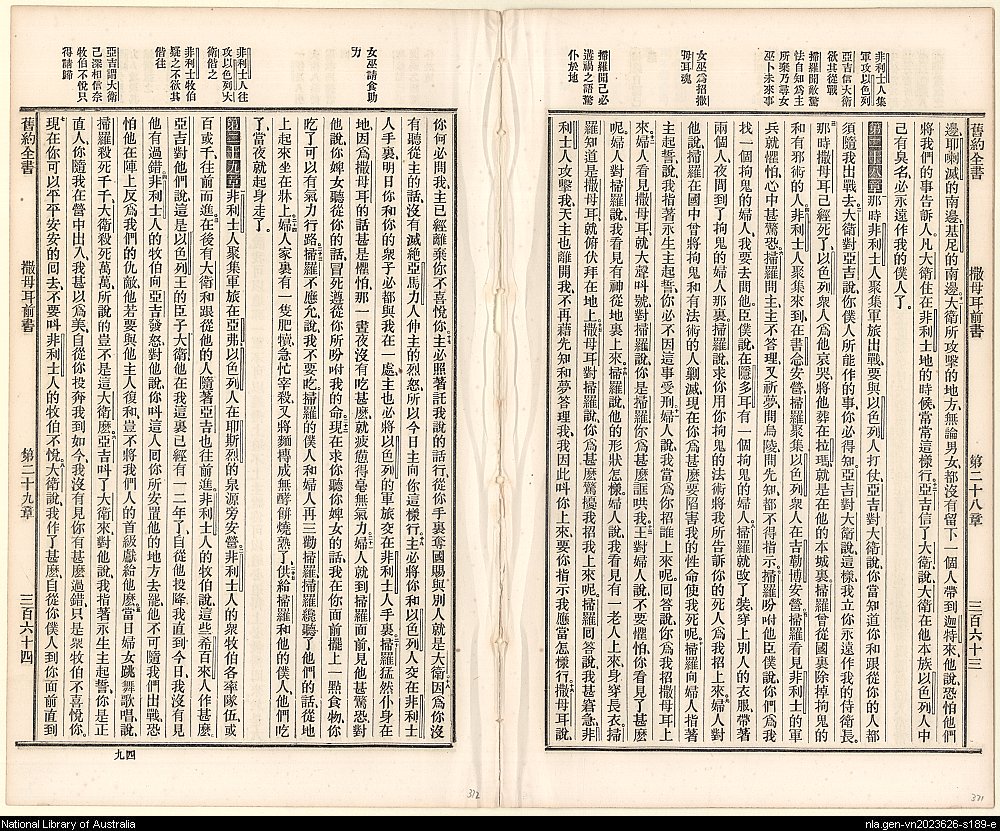 舊約全書 撒母耳前書 第二十八章 三百六十三
非利士人集
軍攻以色列
亞吉信大衛
欲其從戰
掃羅聞敵驚
法自知爲主
所棄乃尋女
巫卜未來事
女巫爲招撒
母耳魂
掃羅聞己必
遘禍之語驚
仆於地
邊、耶喇滅的南邊、基尼的南邊、大衛所攻擊的地方、無論男女、都沒有留下一個人帶到迦特來、他說、恐怕他們
將我們的事告訴人、凡大衛住在非利士地的時候、常常這樣行、亞吉信了大衛說、大衛在他本族以色列人中
己有臭名、必永遠作我的僕人了。
第二十八章 那時非利士人聚集軍旅出戰、要與以色列人打仗、亞吉對大衛說、你當知道你和跟從你的人都
須隨我出戰去、大衛對亞吉說、你僕人所能作的事、你必得知、亞吉對大衛說、這樣、我立你永遠作我的侍衛長。
那時撒母耳已經死了、以色列衆人爲他哀哭、將他葬在拉瑪、就是在他的本城裏、掃羅曾從國裏除掉拘鬼的
和有邪術的人、非利士人聚集來到、在書念安營、掃羅聚集以色列衆人在吉勒博安營、掃羅看見非利士的軍
兵就懼怕、心中甚驚恐、掃羅問主、主不答理、又祈夢、問烏陵、問先知、都不得指示、掃羅吩咐他臣僕說、你們爲我
找一個拘鬼的婦人、我要去問他、臣僕說、在隱多耳有一個拘鬼的婦人、掃羅就改了裝、穿上別人的衣服、帶著
兩個人夜間到了拘鬼的婦人那裏、掃羅說、求你用你拘鬼的法術、將我所告訴你的死人爲我招上來、婦人對
他說、掃羅在國中曾將拘鬼和有法術的人剿滅、現在你爲甚麼要陷害我的性命、使我死呢、掃羅向婦人指著
主起誓、說、我指著永生主起誓、你必不因這事受刑、婦人說、我當爲你招誰上來呢、囘答說、你爲我招撒母耳上
來、婦人看見撒母耳、就大聲呌號、對掃羅說、你是掃羅、爲甚麼誆哄我、王對婦人說、不要懼怕、你看見了甚麼
呢、婦人對掃羅說、我看見有神從地裏上來、掃羅說、他的形狀怎樣、婦人說、我看見有一老人上來、身穿長衣、掃
羅知道是撒母耳、就俯伏拜在地上、撒母耳對掃羅說、你爲甚麼驚擾我、招我上來呢、掃羅囘答說、我甚窘急、非
利士人攻擊我、天主也離開我、不再藉先知和夢答理我、我因此呌你上來、要你指示我應當怎樣行、撒母耳說、
371
女巫請食助
力
非利士人往
攻以色列大
衛偕之
非利士牧伯
疑之不欲其
偕往
亞吉謂大衛
己深相信奈
牧伯不悅只
得請歸
你何必問我、主已經離棄你、不喜悅你、主必照著託我說的話行、從你手裏奪國賜與別人、就是大衛、因爲你沒
有聽從主的話、沒有滅絕亞馬力人、伸主的烈怒、所以今日主向你這樣行、主必將你和以色列人交在非利士
人手裏、明日你和你的衆子必都與我在一處、主也必將以色列的軍旅交在非利士人手裏、掃羅猛然仆身在
地、因爲撒母耳的話甚是懼怕、那一晝夜沒有吃甚麼、就疲憊得毫無氣力、婦人就到掃羅面前、見他甚驚恐、對
他說、你婢女聽從你的話、冒死遵從你所吩咐我的命、現在求你聽你婢女的話、我在你面前擺上一點食物、你
吃了可以有氣力行路、掃羅不應允、說、我不要吃、掃羅的僕人和婦人再三勸掃羅、掃羅纔聽了他們的話、從地
上起來、坐在牀上、婦人家裏有一隻肥犢、急忙宰殺、又將麵摶成無酵餅燒熟了、供給掃羅和他的僕人、他們吃
了、當夜就起身走了。
第二十九章 非利士人聚集軍旅在亞弗、以色列人在耶斯烈的泉源旁安營、非利士人的衆牧伯各率隊伍、或
百或千、往前而進、在後有大衛和跟從他的人隨著亞吉也往前進、非利士人的牧伯說、這些希百來人作甚麼、
亞吉對他們說、這是以色列王的臣子大衛、他在我這裏已經有一二年了、自從他投降我直到今日、我沒有見
他有過錯、非利士人的牧伯向亞吉發怒、對他說、你呌這人囘你所安置他的地方去罷、他不可隨我們出戰、恐
怕他在陣上反爲我們的仇敵、他若要與他主人復和、豈不將我們人的首級獻給他麼、當日婦女跳舞歌唱、說、
掃羅殺死千千、大衛殺死萬萬、所說的豈不是這大衛麼、亞吉呌了大衛來、對他說、我指著永生主起誓、你是正
直人、你隨我在營中出入、我甚以爲美、自從你投奔我到如今、我沒有見你有甚麼過錯、只是衆牧伯不喜悅你、
現在你可以平平安安的囘去、不要呌非利士人的牧伯不悅、大衛說、我作了甚麼、自從你僕人到你面前直到
舊約全書 撒母耳前書 第二十九章 三百六十四
四九
372
National Library of Australia
nla.gen-vn2023626-s189-e